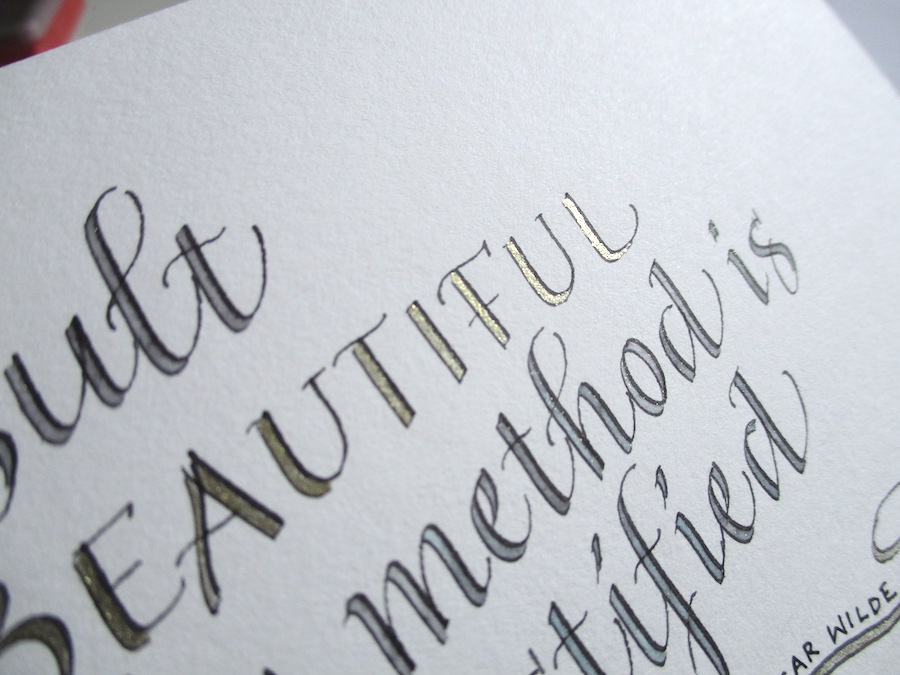 sult
BEAUTIFUL
method is
tified
CAR WILDE